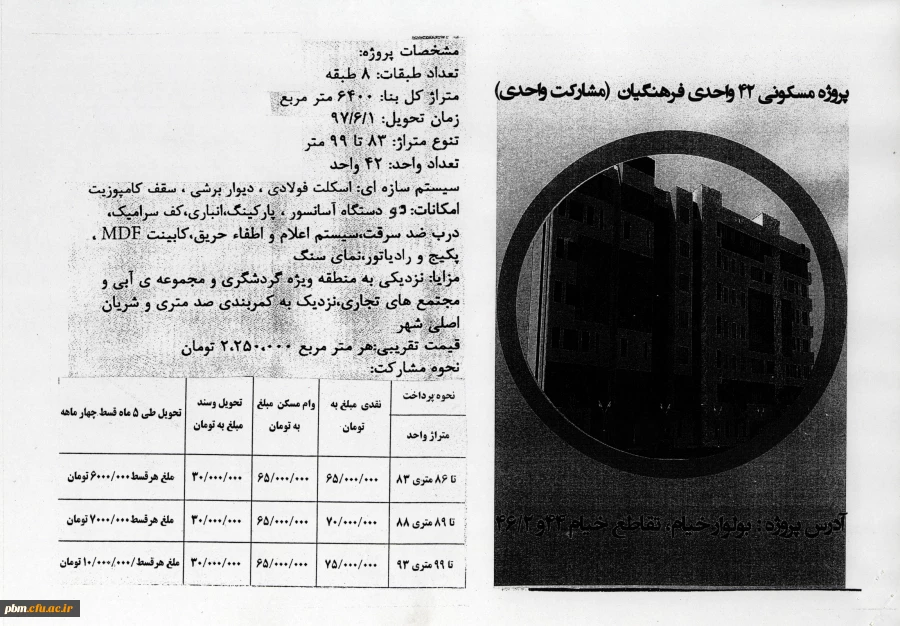 پروژه مسکونی ۴۲ واحدی فرهنگیان (مشارکت واحدی)
آدرس پروژه : بولوار خیام، تقاطع خیام ۴۴ و ۴۶/۲
مشخصات پروژه:
تعداد طبقات: ۸ طبقه
متراژ کل بنا: ۶۴۰۰ متر مربع
زمان تحویل: ۹۷/۶/۱
تنوع متراژ: ۸۳ تا ۹۹ متر
تعداد واحد: ۴۲ واحد
سیستم سازه ای: اسکلت فولادی ، دیوار برشی ، سقف کامپوزیت
امکانات: دو دستگاه آسانسور ، پارکینگ،انباری،کف سرامیک،
درب ضد سرقت،سیستم اعلام و اطفاء حریق،کابینت MDF ،
پکیج و رادیاتور،نمای سنگ
مزایا: نزدیکی به منطقه ویژه گردشگری و مجموعه ی آبی و
مجتمع های تجاری،نزدیک به کمربندی صد متری و شریان
اصلی شهر
قیمت تقریبی:هر متر مربع ۲.۲۵۰.۰۰۰ تومان
نحوه مشارکت:
نحوه پرداخت
متراژ واحد
نقدی مبلغ به تومان
وام مسکن مبلغ به تومان
تحویل وسند مبلغ به تومان
تحویل طی ۵ ماه قسط چهار ماهه
تا ۸۶ متری ۸۳ ۶۵/۰۰۰/۰۰۰ ۶۵/۰۰۰/۰۰۰ ۳۰/۰۰۰/۰۰۰ ملغ هرقسط۶۰۰۰/۰۰۰ تومان
تا ۸۹ متری ۸۸ ۷۰/۰۰۰/۰۰۰ ۶۵/۰۰۰/۰۰۰ ۳۰/۰۰۰/۰۰۰ ملغ هرقسط۷۰۰۰/۰۰۰ تومان
تا ۹۹ متری ۹۳ ۷۵/۰۰۰/۰۰۰ ۶۵/۰۰۰/۰۰۰ ۳۰/۰۰۰/۰۰۰ ملغ هرقسط/۱۰/۰۰۰/۰۰۰ تومان
pbm.cfu.ac.ir